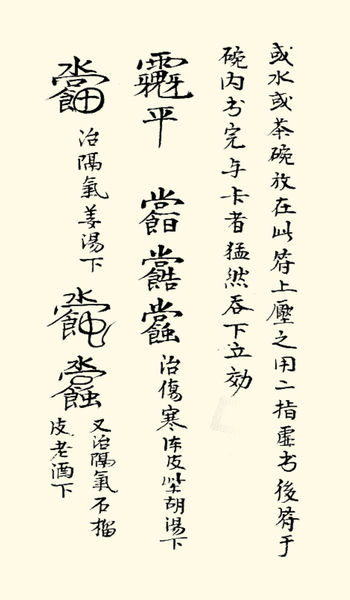 或水或茶碗放在此符上壓之用二指虛书後符于
碗内书完与卡者猛然吞下立効
平
治傷寒陈皮柴胡湯下
治隔氣姜湯下
又治隔氣石榴
皮老酒下